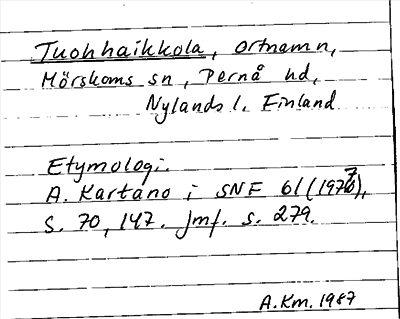 Tuohhaikkola, ortnamn,
Mörskoms sn, Pernå hd,
Nylands l. Finland
Etymologi.
A. Kartano i SNF 61 (1977),
S. 70, 147. Jmf. s. 279.
A.Km. 1987